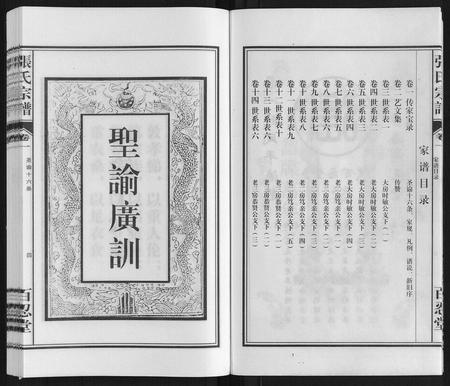 張氏宗譜
卷一
家谱目录
百忍堂
家谱目录
卷一 传家宝录 圣谕十六条、家规、凡例、谱说、新旧序
卷二 艺文集 传赞
卷三 世系表一 老大房时敏公支下(一)
卷四 世系表二 老大房时敏公支下(二)
卷五 世系表三 老大房时敏公支下(三)
卷六 世系表四 老大房时敏公支下(四)
卷七 世系表五 老二房笃亲公支下(一)
卷八 世系表六 老二房笃亲公支下(二)
卷九 世系表七 老二房笃亲公支下(三)
卷十 世系表八 老二房笃亲公支下(四)
卷十一 世系表九 老二房笃亲公支下(五)
卷十二 世系表十 老三房恭贤公支下(一)
卷十三 世系表 老三房恭贤公支下(二)
卷十四 世系表 老三房恭贤公支下(三)
聖諭廣訓
張氏宗譜
卷一
圣谕十六条
四
百忍堂